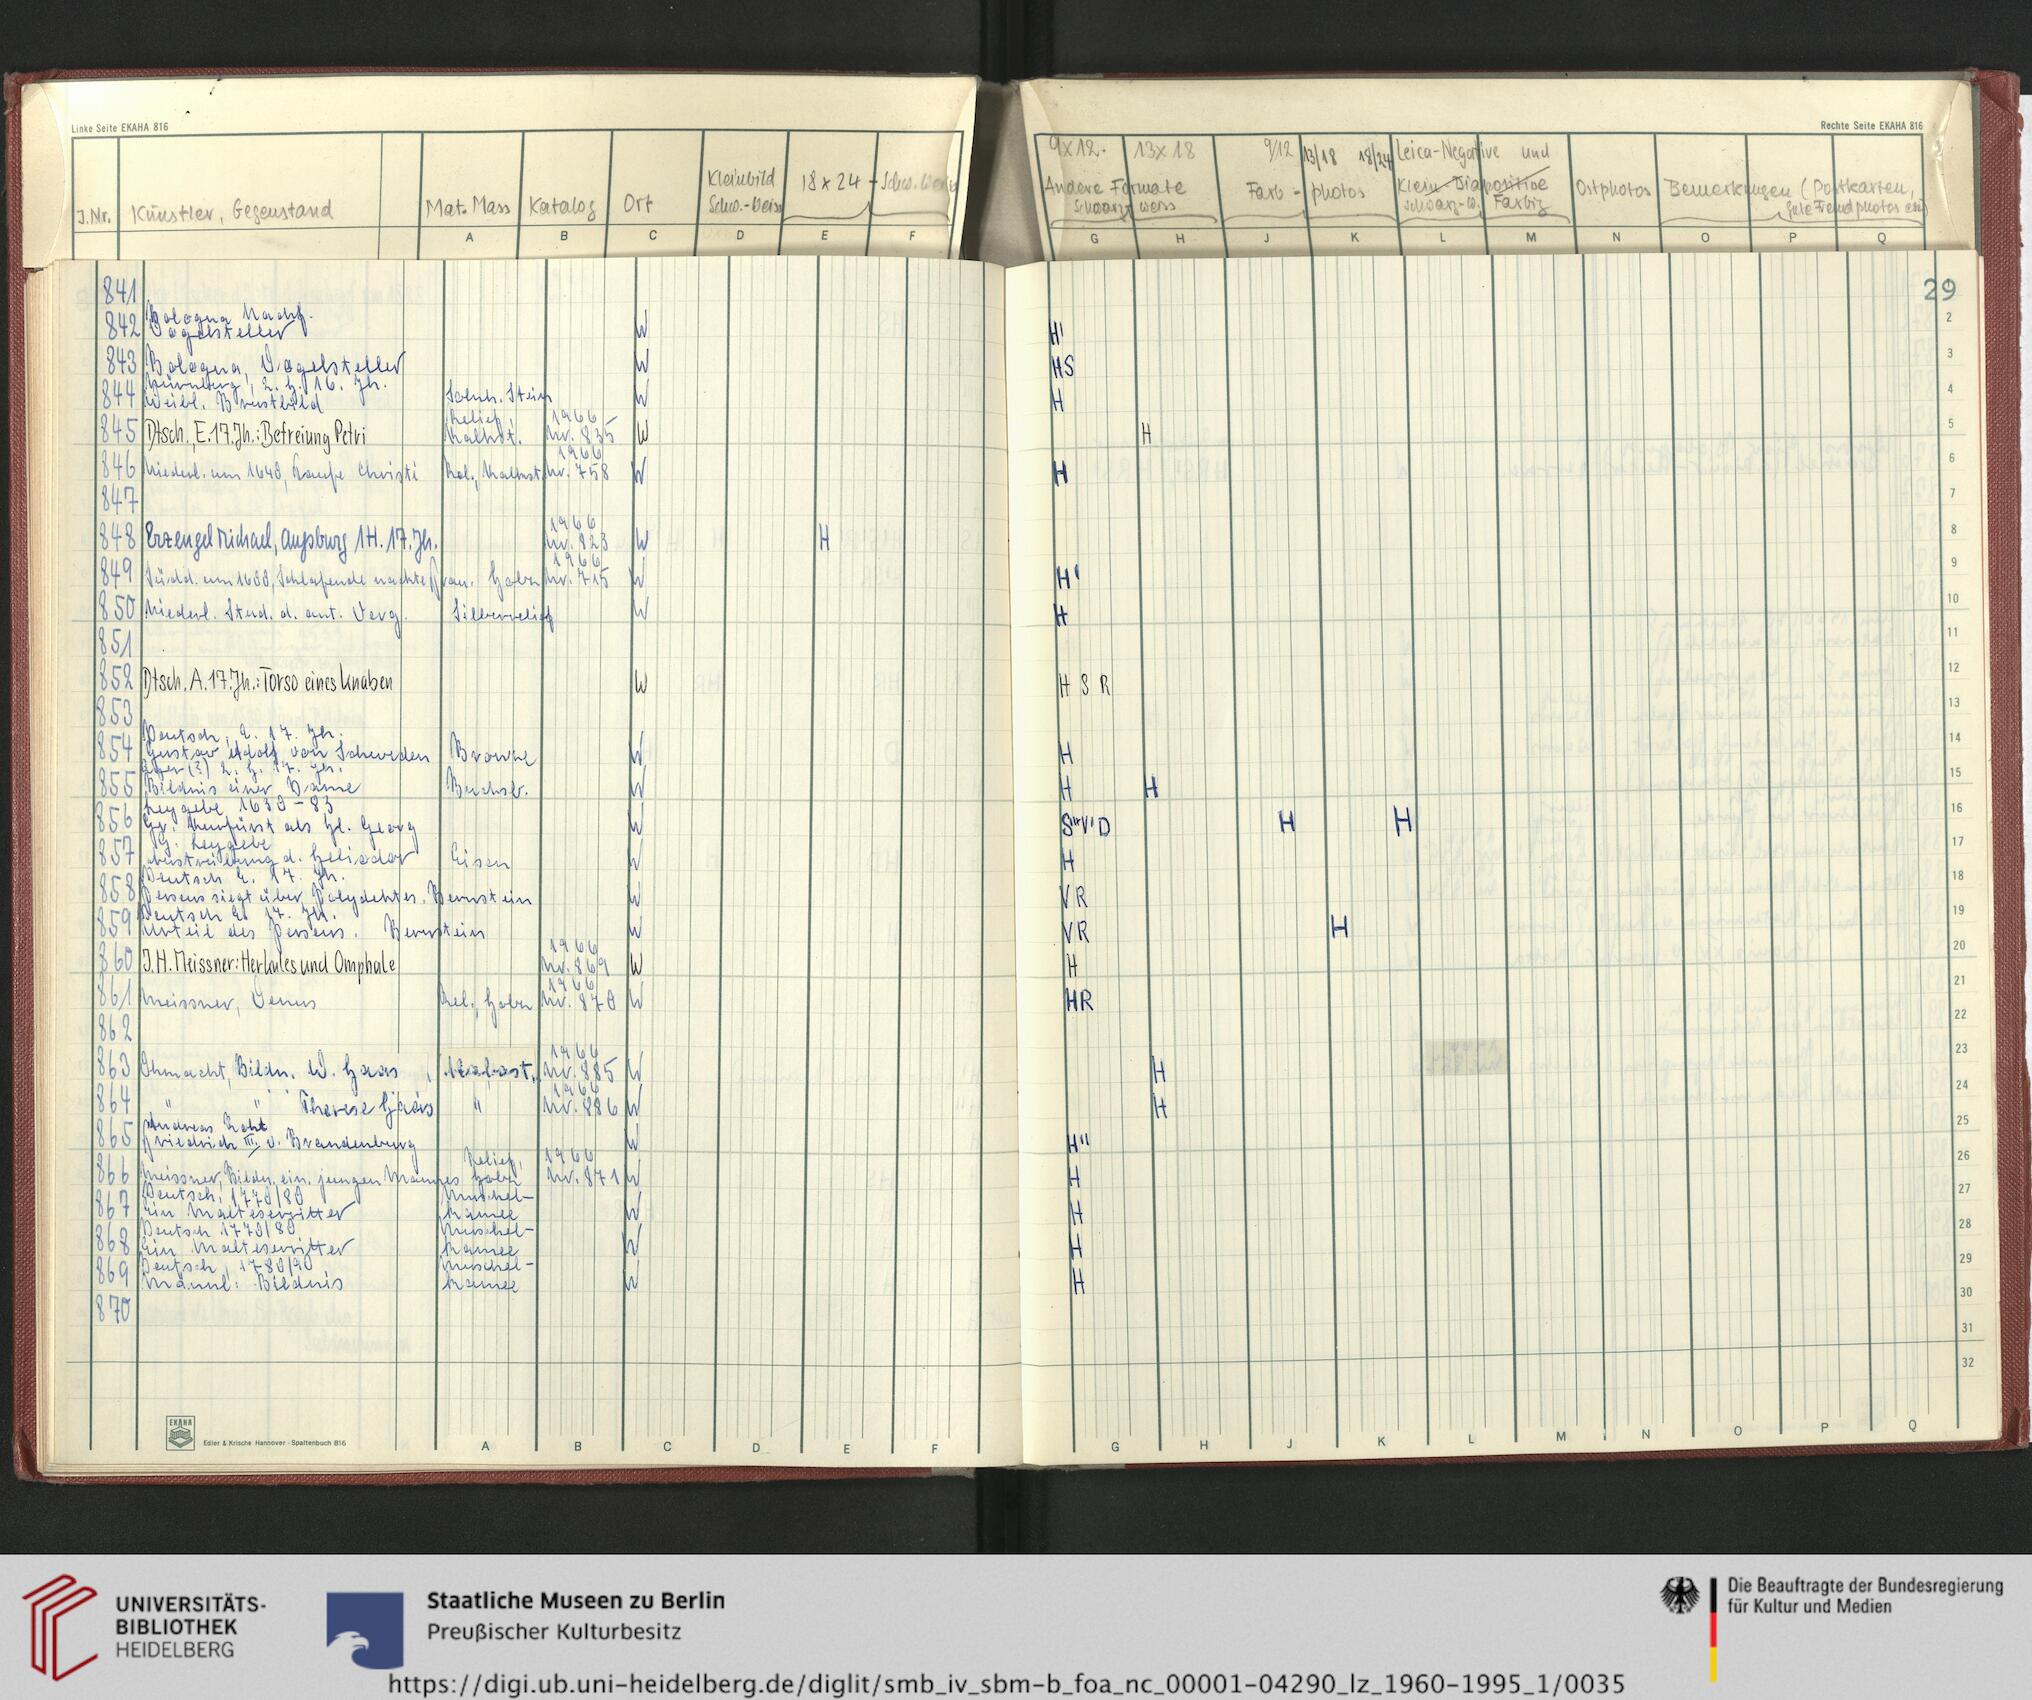 Linke Seite EKAHA 816
J.Nr. Künstler, Gegenstand Mat. Mass Katalog Ort Kleinbild Schw.-Weiss 18 x 24 - Schw. Weiss
A B C D E F
Rechte Seite EKAHA 816
9x12. 13x18 9/12 13/18 18/24 Leica-Negative und
Andere Formate Farb - photos Klein-Diapositive Ostphotos Bemerkungen (Postkarten,
Schwarz weiss schwarz-w. Farbig gute Fremdphotos etc)
G H J K L M N O P Q
29
841
Bologna Nachf.
842 Vogelsteller W H' 2
843 Bologna, Vogelsteller W HS 3
Nürnberg, 2. H. 16. Jh.
844 Weibl. Brustbild Solnh. Stein W H 4
Relief, 1966
845 Dtsch, E. 17. Jh.: Befreiung Petri Kalkst. Nr. 835 W H 5
1966
846 Niederl. um 1640, Taufe Christi Rel., Kalkst. Nr. 758 W H 6
847 7
1966
848 Erzengel Michael, Augsburg 1H. 17. Jh. Nr. 823 W H 8
1966
849 Südd. um 1600, Schlafende nackte Frau. Holz Nr. 715 W H' 9
850 Niederl. Stud. d. ant. Verg. Silberrelief W H 10
851 11
852 Dtsch. A. 17. Jh.: Torso eines Knaben W H S R 12
853 13
Deutsch, 2. 17. Jh.
854 Gustav Adolf von Schweden Bronze W H 14
Eger (?) 2. H. 17. Jh.
855 Bildnis einer Dame Buchsb. W H H 15
Leygebe 1630-83
856 Gr. Kurfürst als Hl. Georg W S'''V'D H H 16
G. Leygebe
857 Austreibung d. Heliodor Eisen W H 17
Deutsch E. 17. Jh.
858 Perseus siegt über Polydektes. Bernstein W VR 18
Deutsch E. 17. Jh.
859 Urteil des Perseus. Bernstein W VR H 19
1966
860 J. H. Meissner: Herkules und Omphale Nr. 869 W H 20
1966
861 Meissner, Venus Rel., Holz Nr. 870 W HR 21
862 22
1966
863 Ohmacht, Bildn. W. Haas, Alabast. Nr. 885 W H 23
1966
864 " " Therese Haas " Nr. 886 W H 24
Andreas
865 Friedrich III. v. Brandenburg W H'' 25
Relief, 1966
866 Meissner, Bildn. ein. jungen Mannes Holz Nr. 871 W H 26
Deutsch, 1770/80 Muschel-
867 Ein Malteserritter kamee W H 27
Deutsch 1770/80 Muschel-
868 Ein Malteserritter kamee W H 28
Deutsch, 1780/90 Muschel-
869 Männl. Bildnis kamee W H 29
870 30
31
32
EKAHA
Edler & Krische Hannover - Spaltenbuch 816
A B C D E F
G H J K L M N O P Q
UNIVERSITÄTS-
BIBLIOTHEK
HEIDELBERG
Staatliche Museen zu Berlin
Preußischer Kulturbesitz
Die Beauftragte der Bundesregierung
für Kultur und Medien
https://digi.ub.uni-heidelberg.de/diglit/smb_iv_sbm-b_foa_nc_00001-04290_lz_1960-1995_1/0035